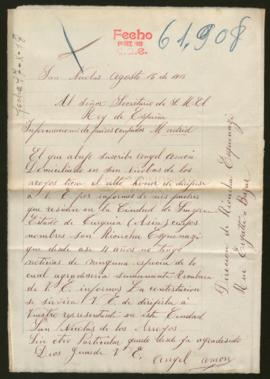 Fecho
61,908
San Nicolas Agosto 15 de 1918
Al Señor Secretario de S. M. El
Rey de España
Madrid
El que abajo suscribe Angel Amon
Domiciliado en San Nicolas de los
Arroyos tiene el alto honor de dirijirse
a V. E. por informes de mis padres
que residen en la Ciudad de
Estado de Turquia (Asia) cuyos
nombres son
que desde ase 4 años no tengo
noticias de ninguna especie de lo
cual agradeseria sumamente
de V. E. informes La contestacion
se servira V. E. de dirijirla a
vuestro representante en esta Ciudad
San Nicolas de los Arroyos
Sin otro Particular quedo desde ya agradesido
Dios Guarde V. E. Angel Amon
Direccion de
Rue